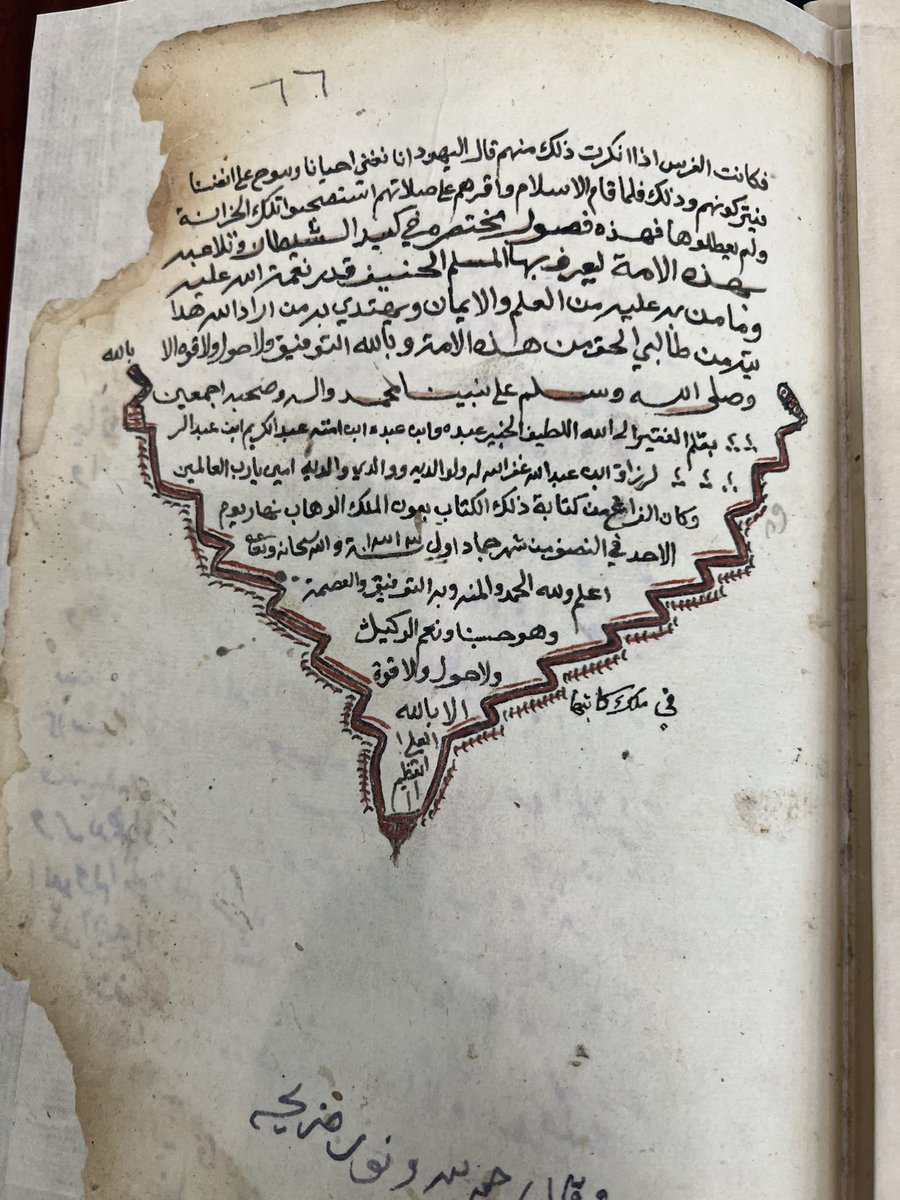 ٦٦
فكانت الفرس اذا انكرت ذلك منهم قال اليهود انا نغني احيانا وننوح على انفسنا
فيتركونهم وذلك فلما قام الاسلام واقرهم على صلاتهم استصحبوا تلك الخزانة
ولم يعطلوها فهذه فصول مختصره في كيد الشيطان وتلاعبه
بهذه الامة ليعرف بها المسلم الحنيف قدر نعمة الله عليه
وما من به عليه من العلم والايمان ويهتدي به من اراد الله هدا
يته من طالبي الحق من هذه الامة وبالله التوفيق ولا حول ولا قوة الا
بالله
وصلى الله وسلم على نبينا محمد واله وصحبه اجمعين
بقلم الفقير الى الله اللطيف الخبير عبده وابن عبده ابن امته عبد الكريم ابن عبد الر
لرزاق ابن عبد الله غفر الله له ولوالديه ووالدي والديه امين يا رب العالمين
وكان الفراغ من كتابة ذلك الكتاب بعون الملك الوهاب نهار يوم
الاحد في النصف من شهر جماد اول والله سبحانه وتعالى
اعلم ولله الحمد والمنه وبه التوفيق والعصمة
وهو حسبنا ونعم الوكيل
ولا حول ولا قوة
الا بالله
العلي ا
العظيم
في ملك كاتبها